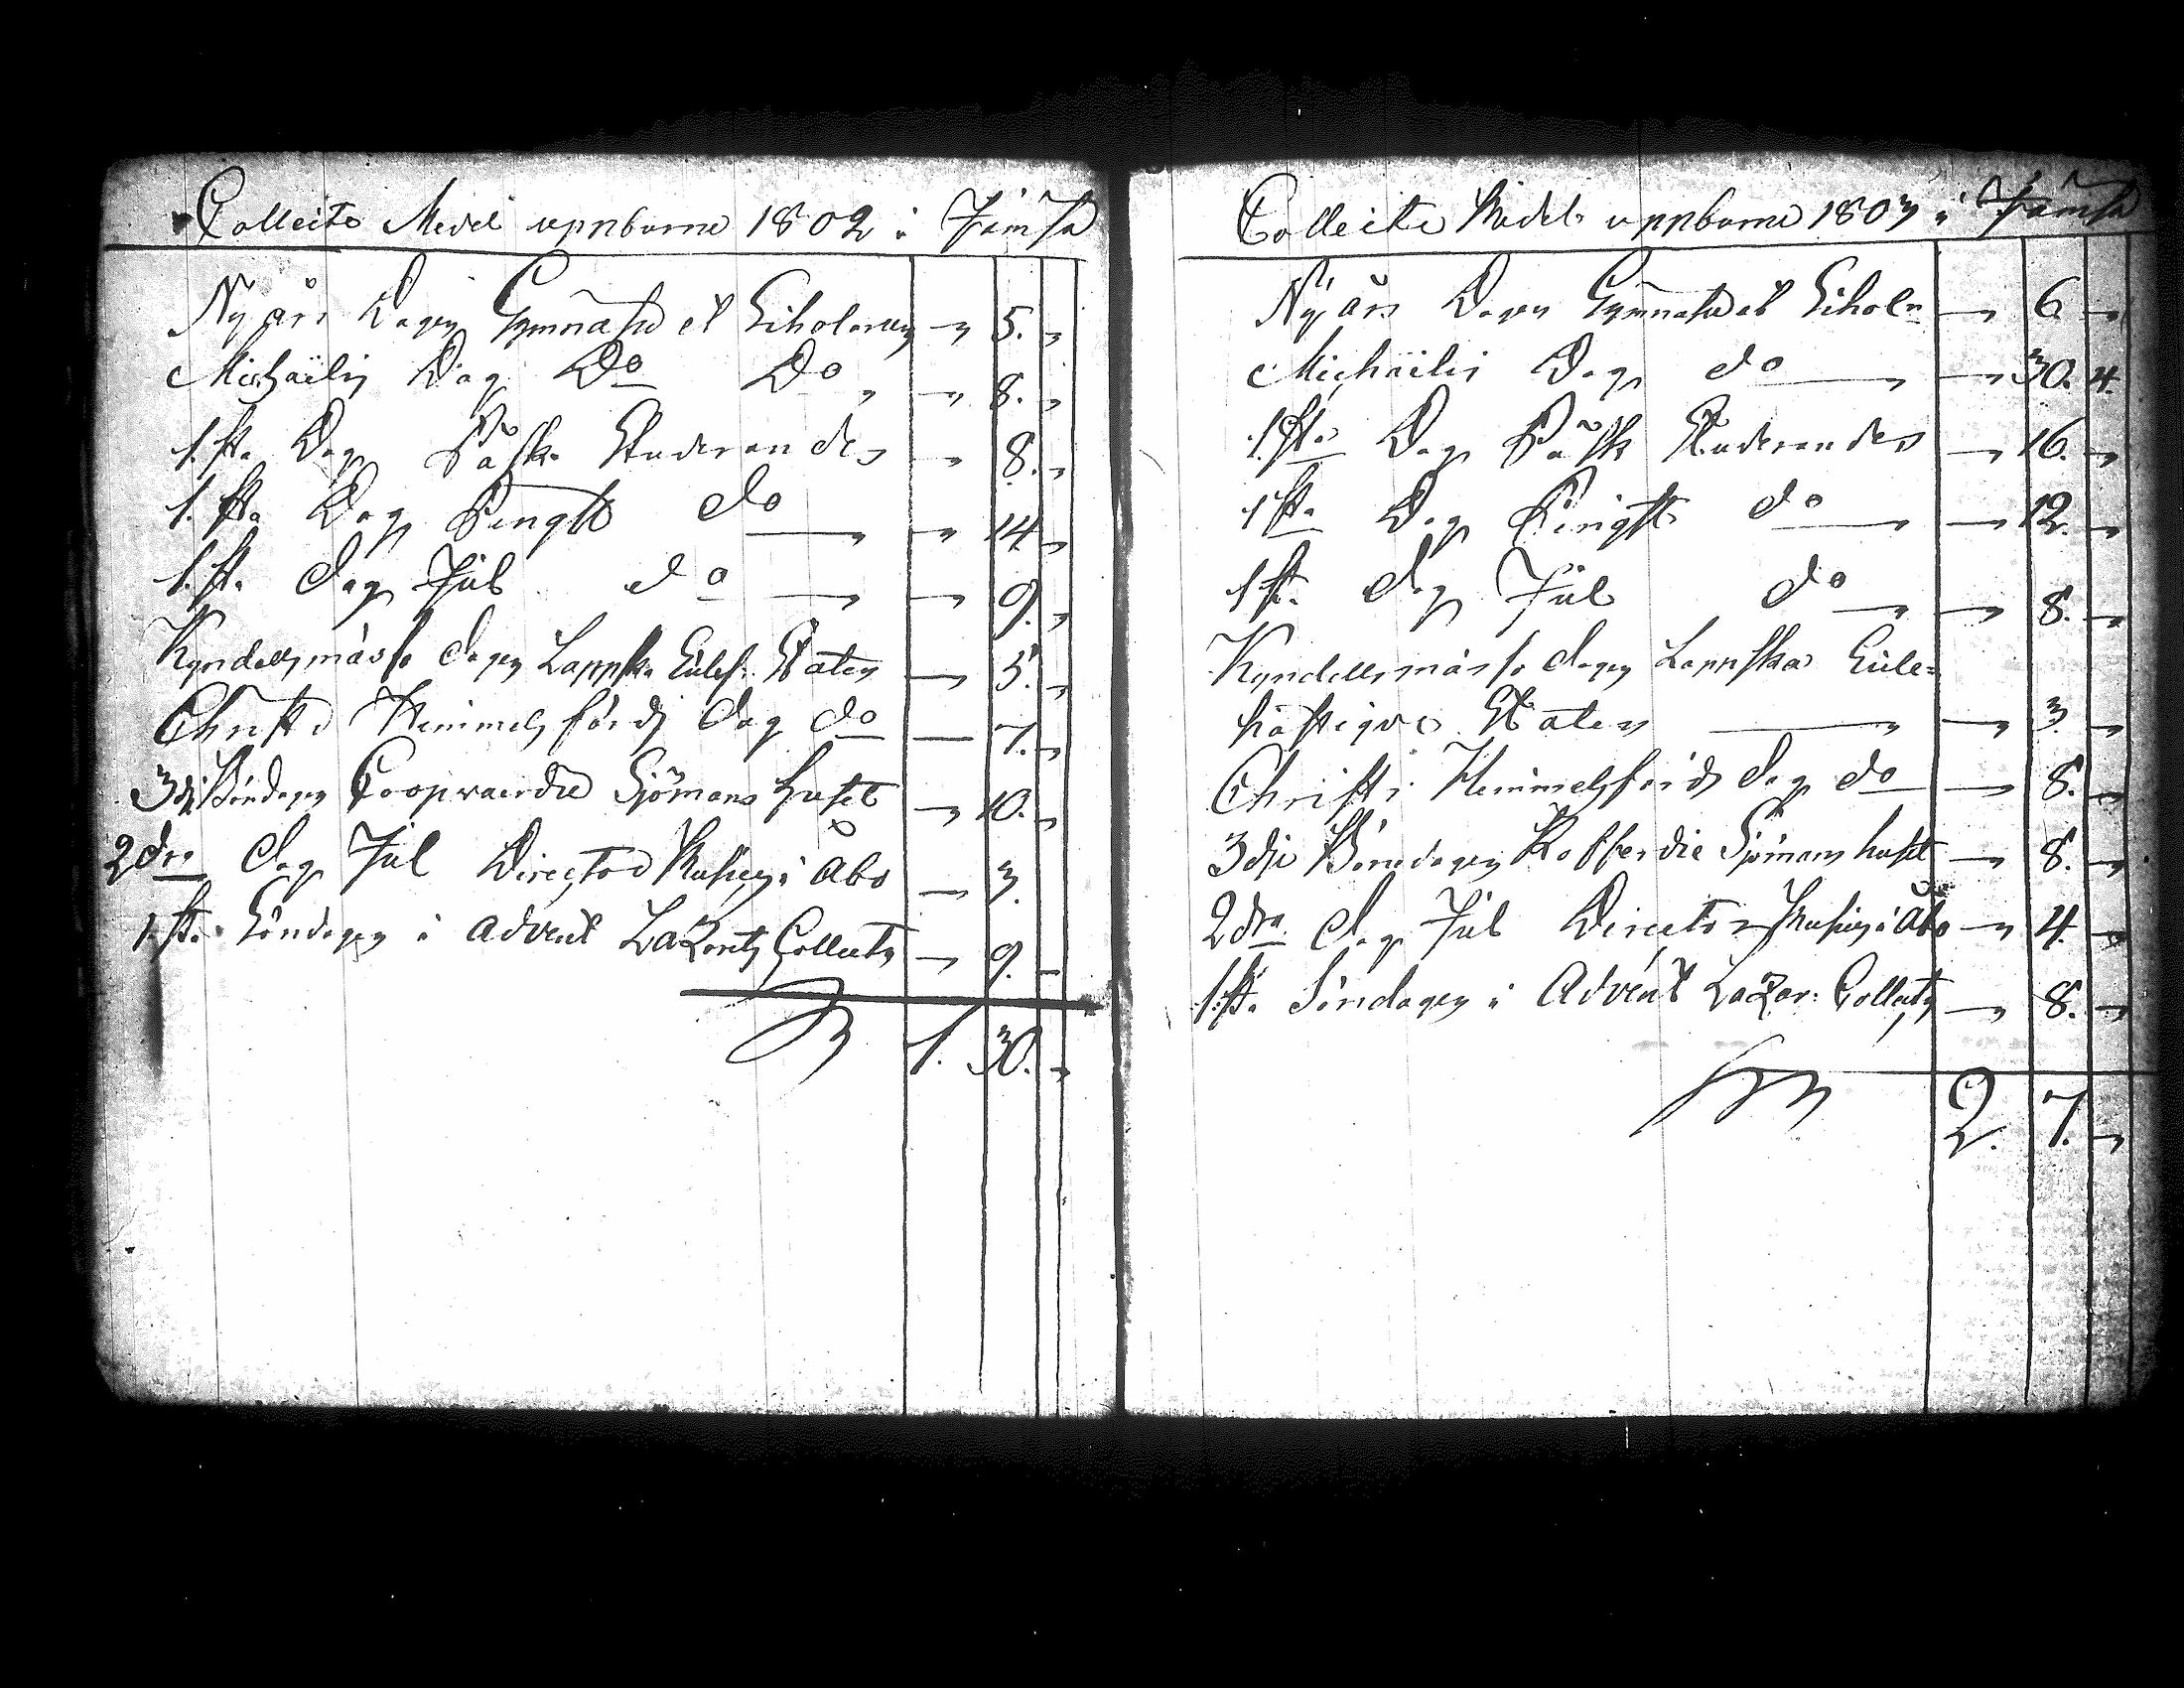 Collecte Medel uppburne 1802 i Jämsä
Nyårs Dagen Gymnasii et Scholarum „ 5. „
Michaëlis Dag Do Do „ „ 8. „
1.sta Dag Påsk Studerandes „ 8. „
1.sta Dag Pingst do — „ „ 14 „
1.sta dag Jul do — „ — „ 9. „
Kyndelsmässo dagen Lappska Eccles: Staten — „ 5. „
Christi Himmelsfärds dag do — 7. „
3dje Böndagen Coopvaerdie Sjömans huset — „ 10. „
2dra dag Jul Director Musices i Åbo — „ 3.
1.sta Söndagen i Advent Lazarets Collecten — „ 9. —
1. 30. „
Collecte Medel uppburne 1803 i Jämsä
Nyårs Dagen Gymnasii et Schol: — „ 6 „
Michaëlis Dag do — „ — „ 30. 4.
1sta Dag Påsk Studerandes — „ 16. „
1sta Dag Pingst do — „ — „ 12. „
1sta dag Jul do — „ — „ 8. „
Kyndelsmässo dagen Lappska Eccle=
siastique Staten — „ — „ 3. „
Christi Himmelsfärds dag do — „ 8. „
3dje Bönedagen Kofferdie Sjömans huset — „ 8. „
2dra dag Jul Director Musices i Åbo — „ 4. „
1.sta Söndagen i Advent Lazar: Collecten — „ 8. „
2. 7. „